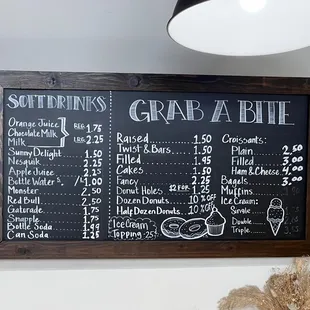 SOFTDRINKS
Orange Juice
Chocolate Milk
Milk
REG 1.75
LRG 2.25
Sunny Delight 1.50
Nesquik 2.25
Apple Juice 2.25
Bottle Water's 1.00
Monster 2.50
Red Bull 2.50
Gatorade 1.75
Snapple 1.75
Bottle Soda 1.99
Can Soda 1.25
GRAB A BITE
Raised 1.50
Twist & Bars 1.50
Filled 1.95
Cakes 1.50
Fancy 2.25
Donut Holes 12 FOR 1.25
Dozen Donuts 10% OFF
Half Dozen Donuts 10% OFF
Ice Cream
Topping .25¢
Croissants:
Plain 2.50
Filled 3.00
Ham & Cheese 4.00
Bagels 3.00
Muffins
Ice Cream:
Double
Triple